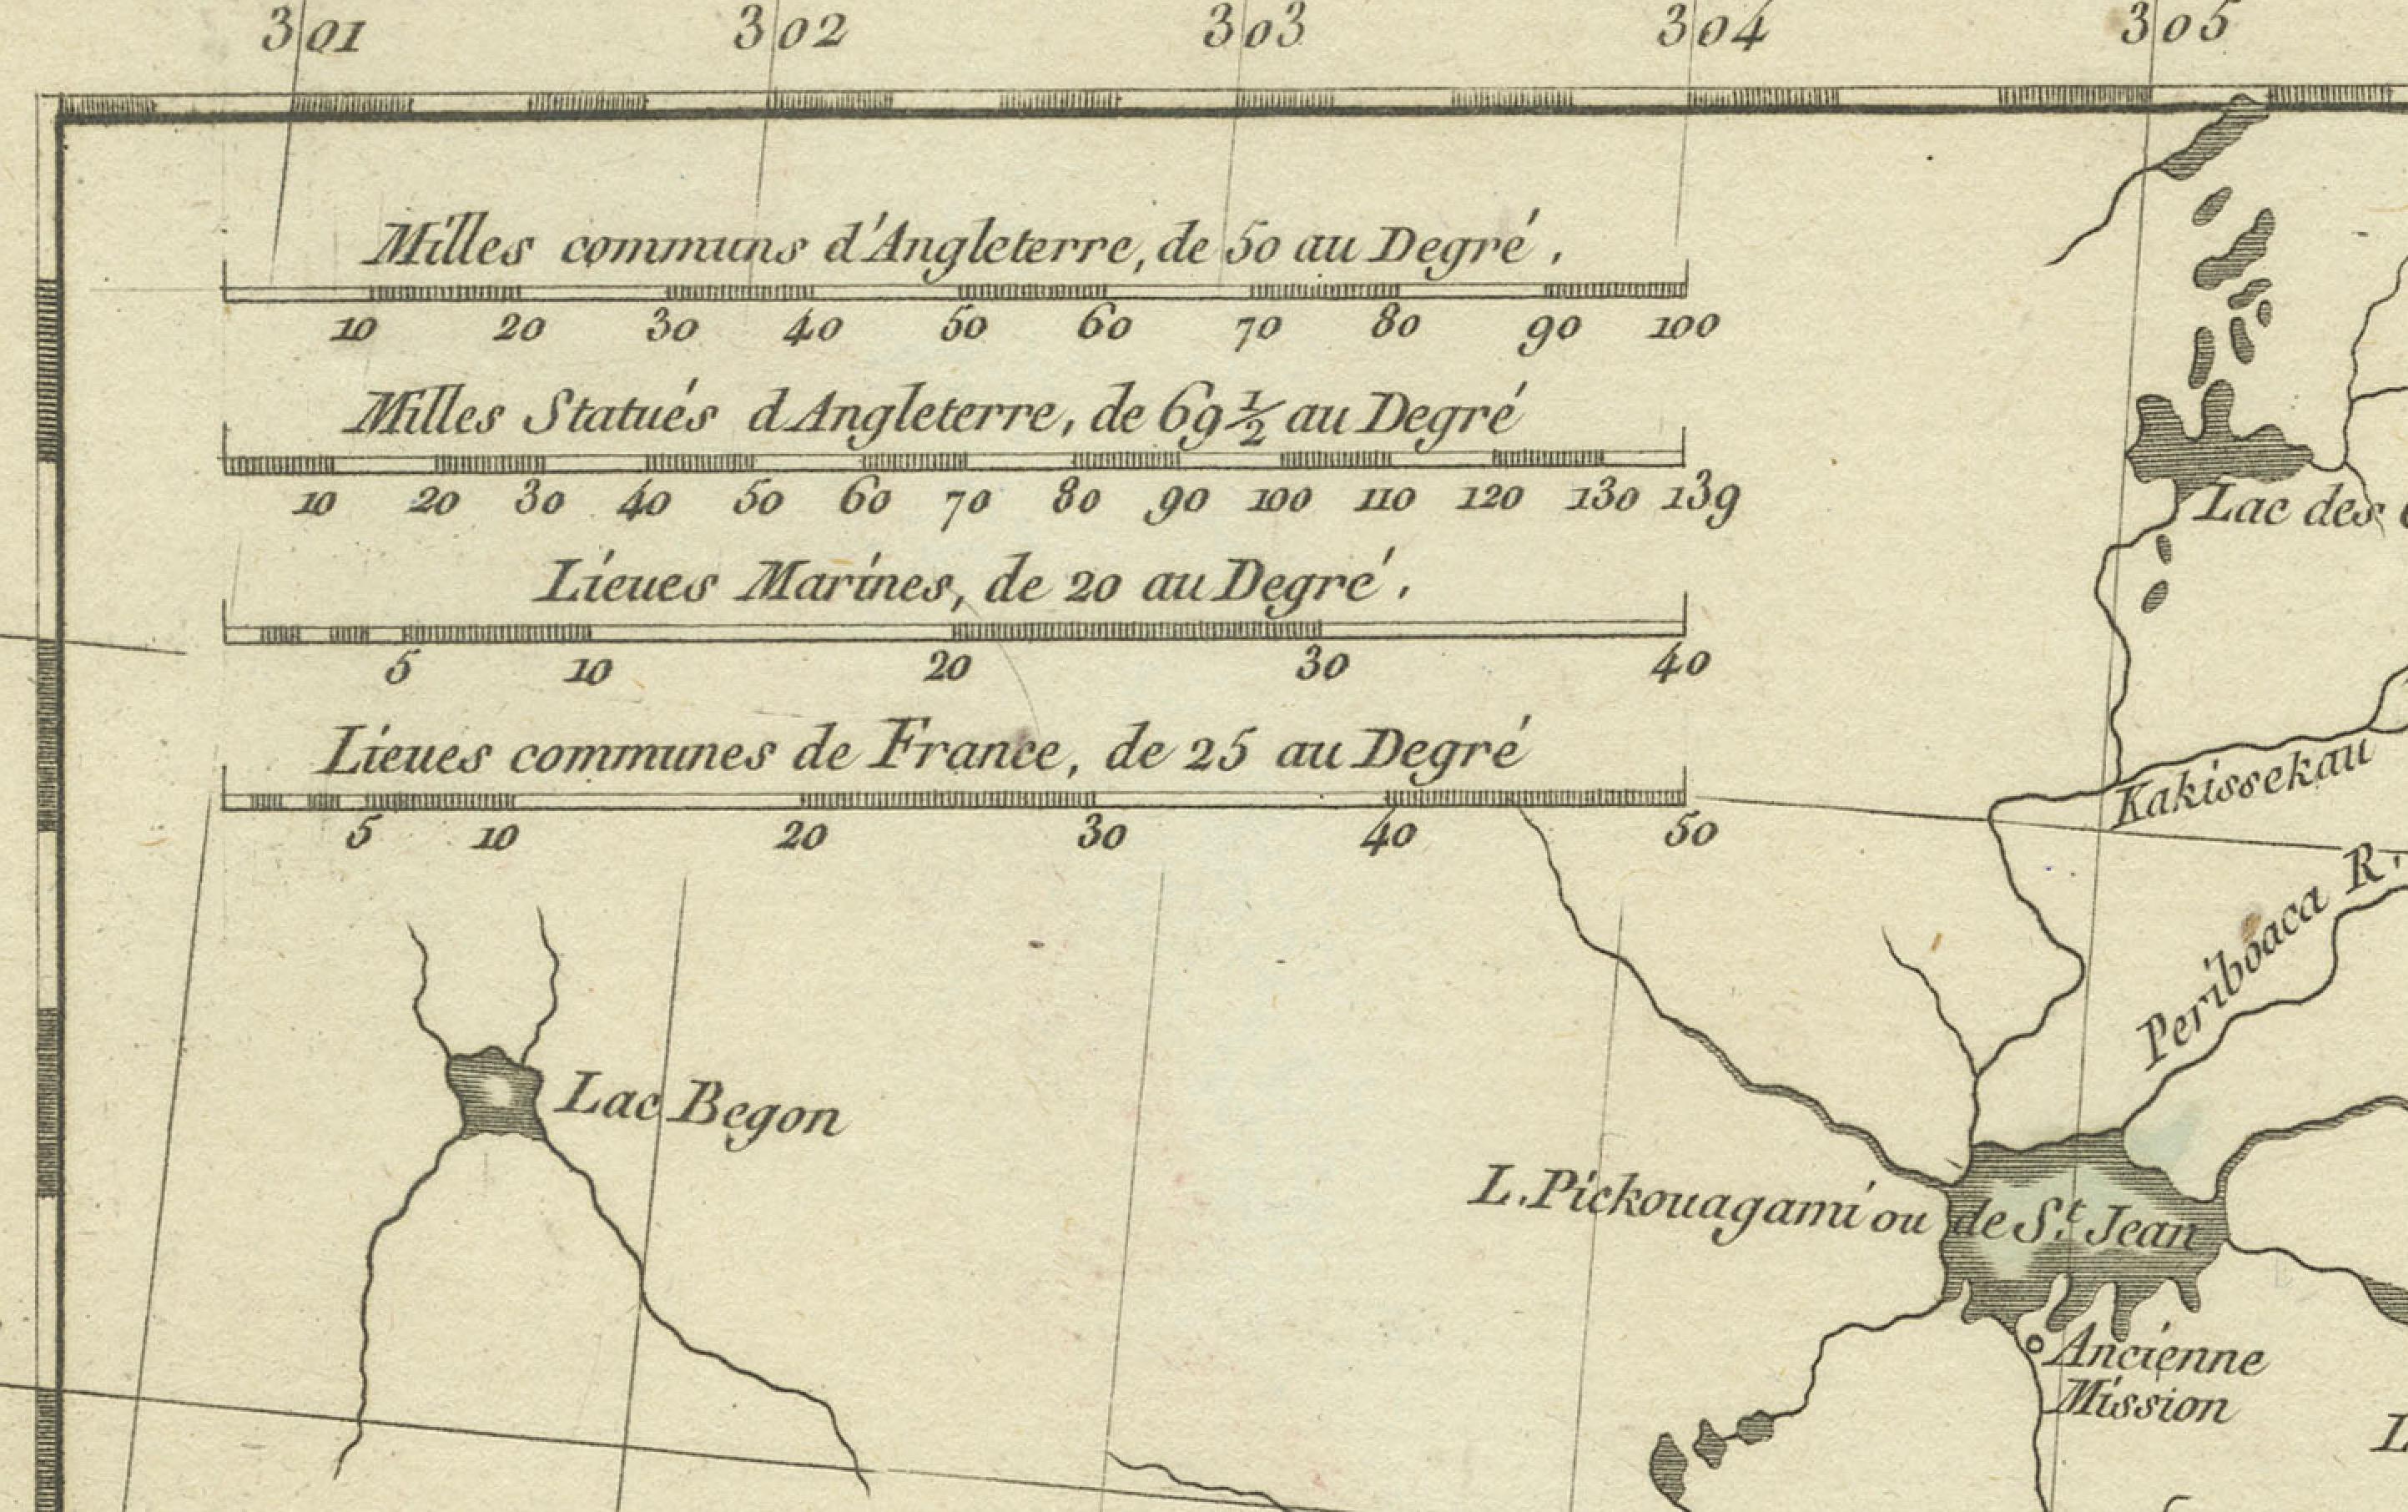 301 302 303 304 305
Milles communs d'Angleterre, de 50 au Degré.
10 20 30 40 50 60 70 80 90 100
Milles Statués d'Angleterre, de 69 1/2 au Degré
10 20 30 40 50 60 70 80 90 100 110 120 130 139
Lac des
Lieues Marines, de 20 au Degré.
5 10 20 30 40
Lieues communes de France, de 25 au Degré
5 10 20 30 40 50
Kakissekau
Periboaca R.
Lac Begon
L. Pickouagami ou de St. Jean
Ancienne
Mission